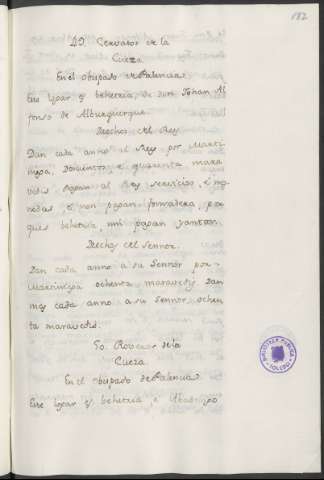 182
49 Cervatos de la
Cueza
En el obispado de Palencia
Este logar es behetria, de don Johan Al
fonso de Alburquerque.
Derechos del Rey
Dan cada anno al Rey por Marti
niega, Docientos, e quarenta mara
vedis pagan al Rey servicios, e mo
nedas, e non pagan fonsadera, por
que es behetria, nin pagan yantar.
Derechos del Sennor.
Dan cada anno a su Sennor por
Martiniega ochenta maravedis Dan
mas cada anno a su Sennor ochen
ta maravedis.
50. de la
Cueza.
En el obispado de Palencia
Este logar es behetria, e Abadengo
BIBLIOTECA PUBLICA
TOLEDO